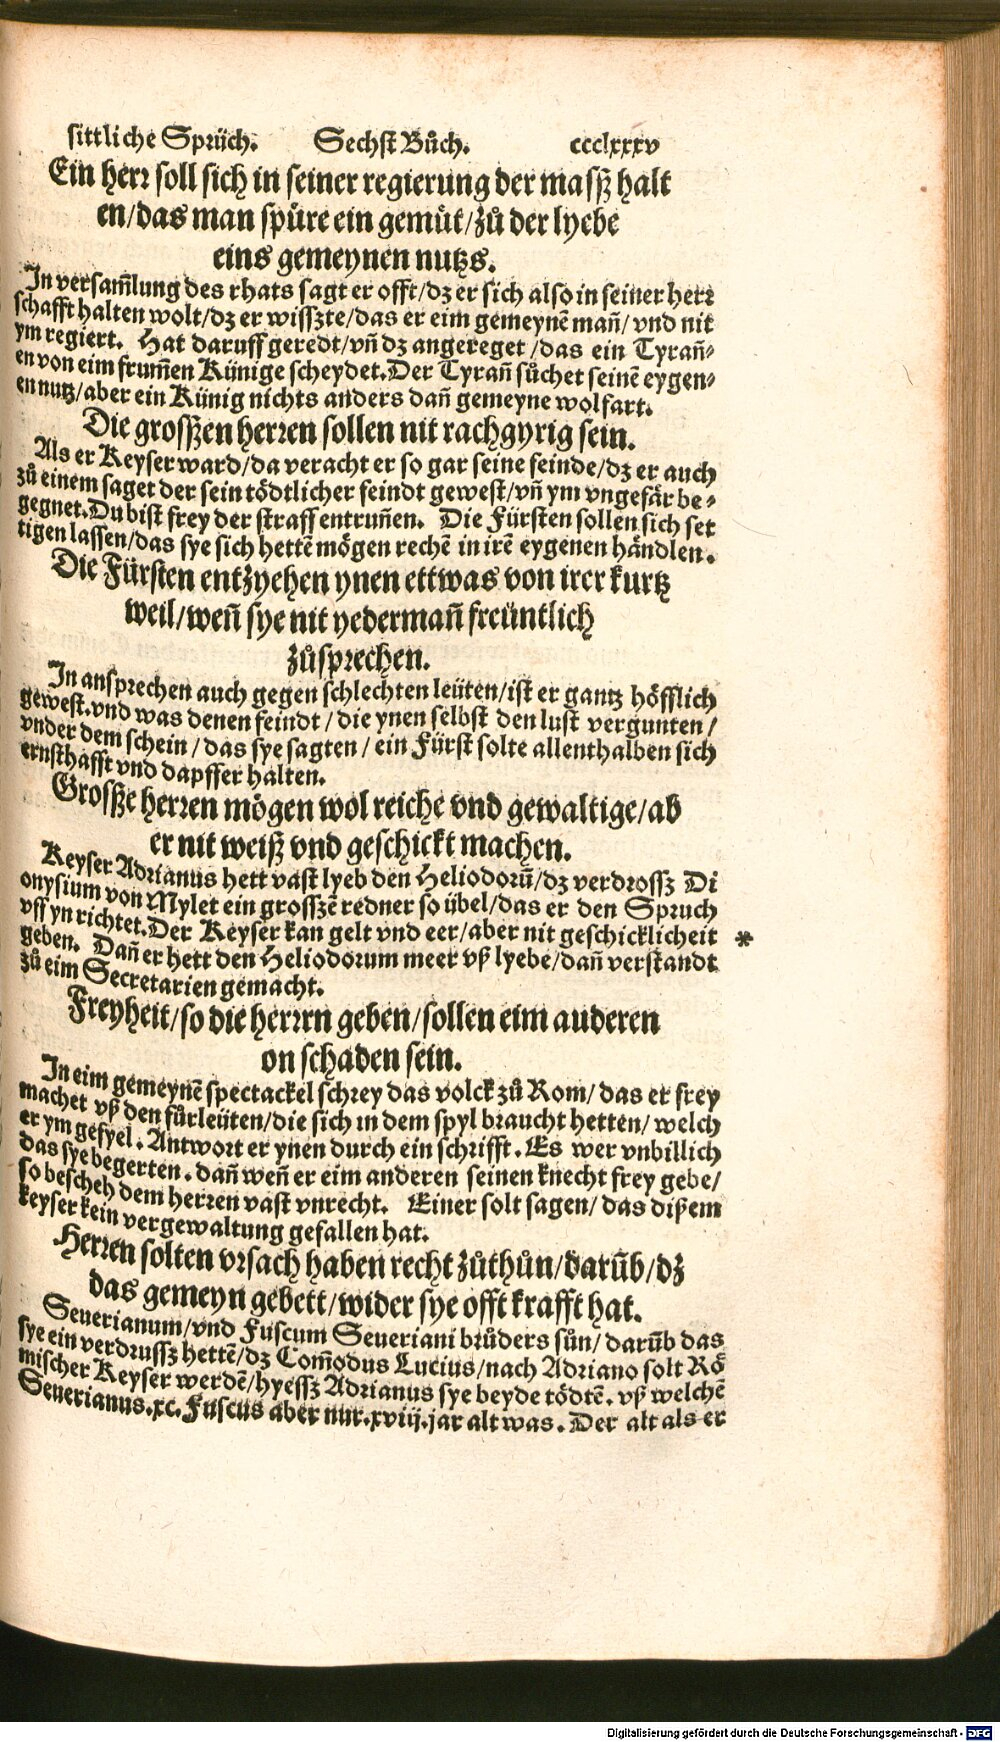 sittliche Sprüch. Sechst Bůch. ccclxxxv
Ein herr soll sich in seiner regierung der massz halt
en/das man spüre ein gemüt/zů der lyebe
eins gemeynen nutzs.
In versam̄lung des rhats sagt er offt/dz er sich also in seiner herr
schafft halten wolt/dz er wisszte/das er eim gemeynē man̄/vnd nit
ym regiert. Hat daruff geredt/vn̄ dz angereget/das ein Tyran̄⸗
en von eim frum̄en Künige scheydet. Der Tyran̄ sůchet seinē eygen⸗
en nutz/aber ein Künig nichts anders dan̄ gemeyne wolfart.
Die grosszen herren sollen nit rachgyrig sein.
Als er Keyser ward/da veracht er so gar seine feinde/dz er auch
zů einem saget der sein tödtlicher feindt gewest/vn̄ ym vngefär be⸗
gegnet. Du bist frey der straff entrun̄en. Die Fürsten sollen sich set
tigen lassen/das sye sich hettē mögen rechē in irē eygenen händlen.
Die Fürsten entzyehen ynen ettwas von irer kurtz
weil/wen̄ sye nit yederman̄ freüntlich
zůsprechen.
In ansprechen auch gegen schlechten leüten/ist er gantz höfflich
gewest. vnd was denen feindt/die ynen selbst den lust vergunten/
vnder dem schein/das sye sagten/ein Fürst solte allenthalben sich
ernsthafft vnd dapffer halten.
Grossze herren mögen wol reiche vnd gewaltige/ab
er nit weiß vnd geschickt machen.
Keyser Adrianus hett vast lyeb den Heliodorū/dz verdrossz Di
onysium von Mylet ein grosszē redner so übel/das er den Spruch
vff yn richtet. Der Keyser kan gelt vnd eer/aber nit geschicklicheit *
geben. Dan̄ er hett den Heliodorum meer vß lyebe/dan̄ verstandt
zů eim Secretarien gemacht.
Freyheit/so die herrrn geben/sollen eim anderen
on schaden sein.
In eim gemeynē spectackel schrey das volck zů Rom/das er frey
machet vß den fůrleüten/die sich in dem spyl braucht hetten/welch
er ym gefyel. Antwort er ynen durch ein schrifft. Es wer vnbillich
das sye begerten. dan̄ wen̄ er eim anderen seinen knecht frey gebe/
so bescheh dem herren vast vnrecht. Einer solt sagen/das dißem
keyser kein vergewaltung gefallen hat.
Herren solten vrsach haben recht zůthůn/darūb/dz
das gemeyn gebett/wider sye offt krafft hat.
Seuerianum/vnd Fuscum Seueriani brüders sůn/darūb das
sye ein verdrussz hettē/dz Com̄odus Lucius/nach Adriano solt Rö
mischer Keyser werdē/hyessz Adrianus sye beyde tödtē. vß welchē
Seuerianus. xc. Fuscus aber nur. xviij. jar alt was. Der alt als er
Digitalisierung gefördert durch die Deutsche Forschungsgemeinschaft - DFG